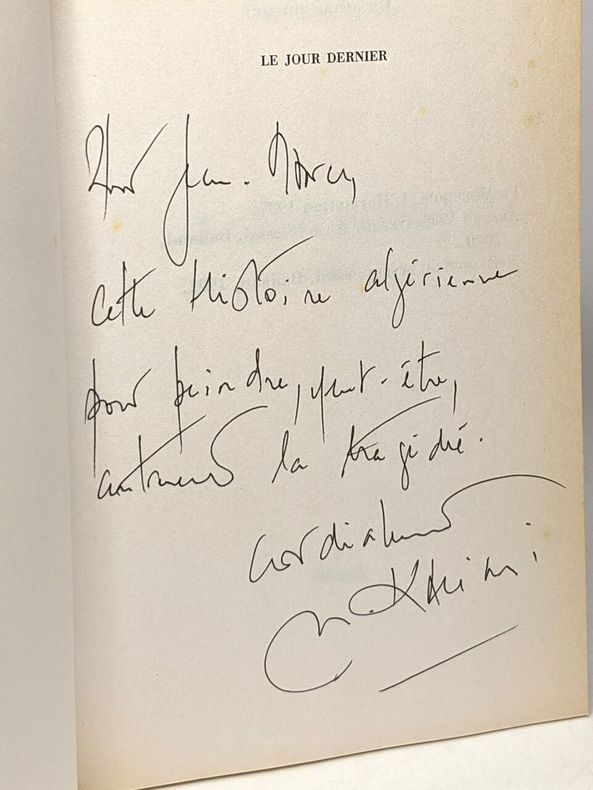 LE JOUR DERNIER
Pour Jean-Marc,
cette histoire algérienne
pour peindre, peut-être,
autrement la tragédie.
Cordialement
M. Kacimi